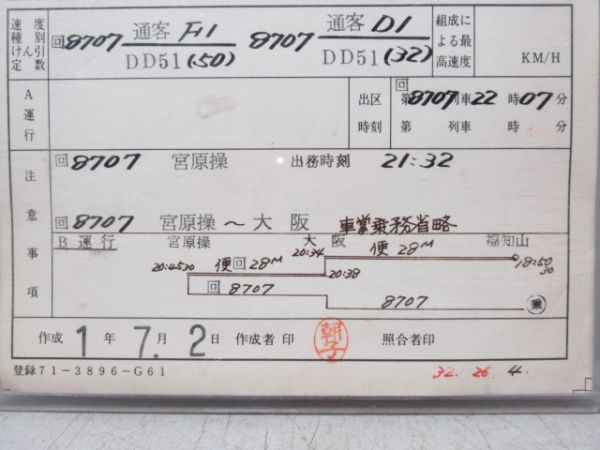 速度 種別 けん引 定数
回8707 通客F1 8707 通客D1
DD51(50) DD51(32)
組成に
よる最
高速度 KM/H
A 運行
出区 第回8707列車22時07分
時刻 第 列車 時 分
注意事項
回8707 宮原操 出務時刻 21:32
回8707 宮原操～大阪 車掌乗務省略
B運行 宮原操 大阪 福知山
20:4530 便回28M 20:34 便28M 18:50 30
20:38
回8707 8707
作成1年7月2日 作成者印 朝子 照合者印
登録71-3896-G61 32. 26. 4.